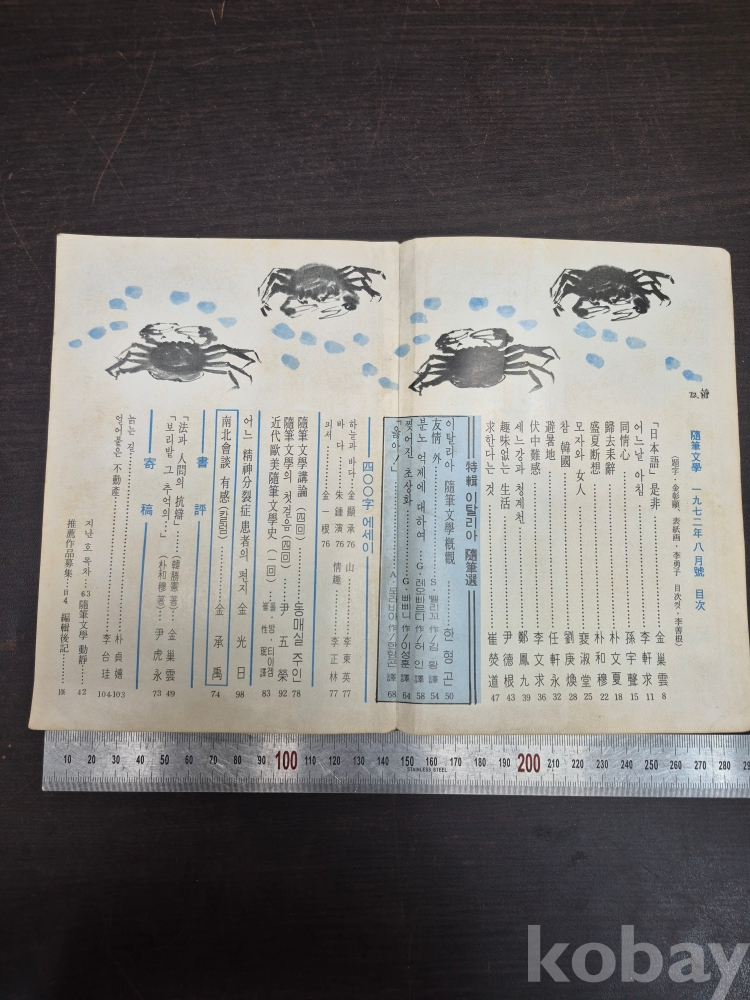 隨筆文學 一九七二年 八月號 目次
(題字·金彰顯, 表紙画·李勇子 目次컷·李善根)
「日本語」是非 金巢雲 8
어느날 아침 李軒求 11
同情心 孫宇聲 15
歸去耒辭 朴文夏 18
盛夏断想 朴和穆 22
모자와 女人 裵淑堂 25
참 韓國 劉庚煥 28
避暑地 任軒永 32
伏中難感 李文求 36
세느강과 청계천 鄭鳳九 39
趣味없는 生活 尹德根 43
求한다는 것 崔熒道 47
特輯 이탈리아 隨筆選
이탈리아 隨筆文學槪觀 한형곤 50
友情 外 S·펠리꼬作/김 황譯 54
분노 억제에 대하여 G·레오빠르디作/허 인譯 58
찢어진 초상화 G·빠삐니作/이성훈譯 64
「옳아!」 A·모라비아作/한형곤譯 68
四〇〇字 에세이
하늘과 바다 金顯承 76
바다 朱鍾演 76
피서 金一根 76
山 李東英 77
情趣 李正林 77
隨筆文學講論 (四回) 동매실 주인 78
隨筆文學의 첫걸음 (四回) 尹五榮 92
近代歐美隨筆文學史 (二回) 崔性珉譯 83
어느 精神分裂症患者의 편지 金光日 98
南北會談 有感 金承禹 74
書評
「法과 人間의 抗辯」 (韓勝憲著) 金巢雲 49
「보리밭 그 추억의…」 (朴和穆著) 尹虎永 73
寄稿
늙는 길 朴貞嬉 103
얼어붙은 不動産 李台珪 104
지난호 목차 63 隨筆文學 動靜 42
推薦作品募集 編輯後記
10 20 30 40 50 60 70 80 90 100 110 120 130 140 150 160 170 180 190 200 210 220 230 240 250 260 270 280
STAINLESS STEEL
kobay